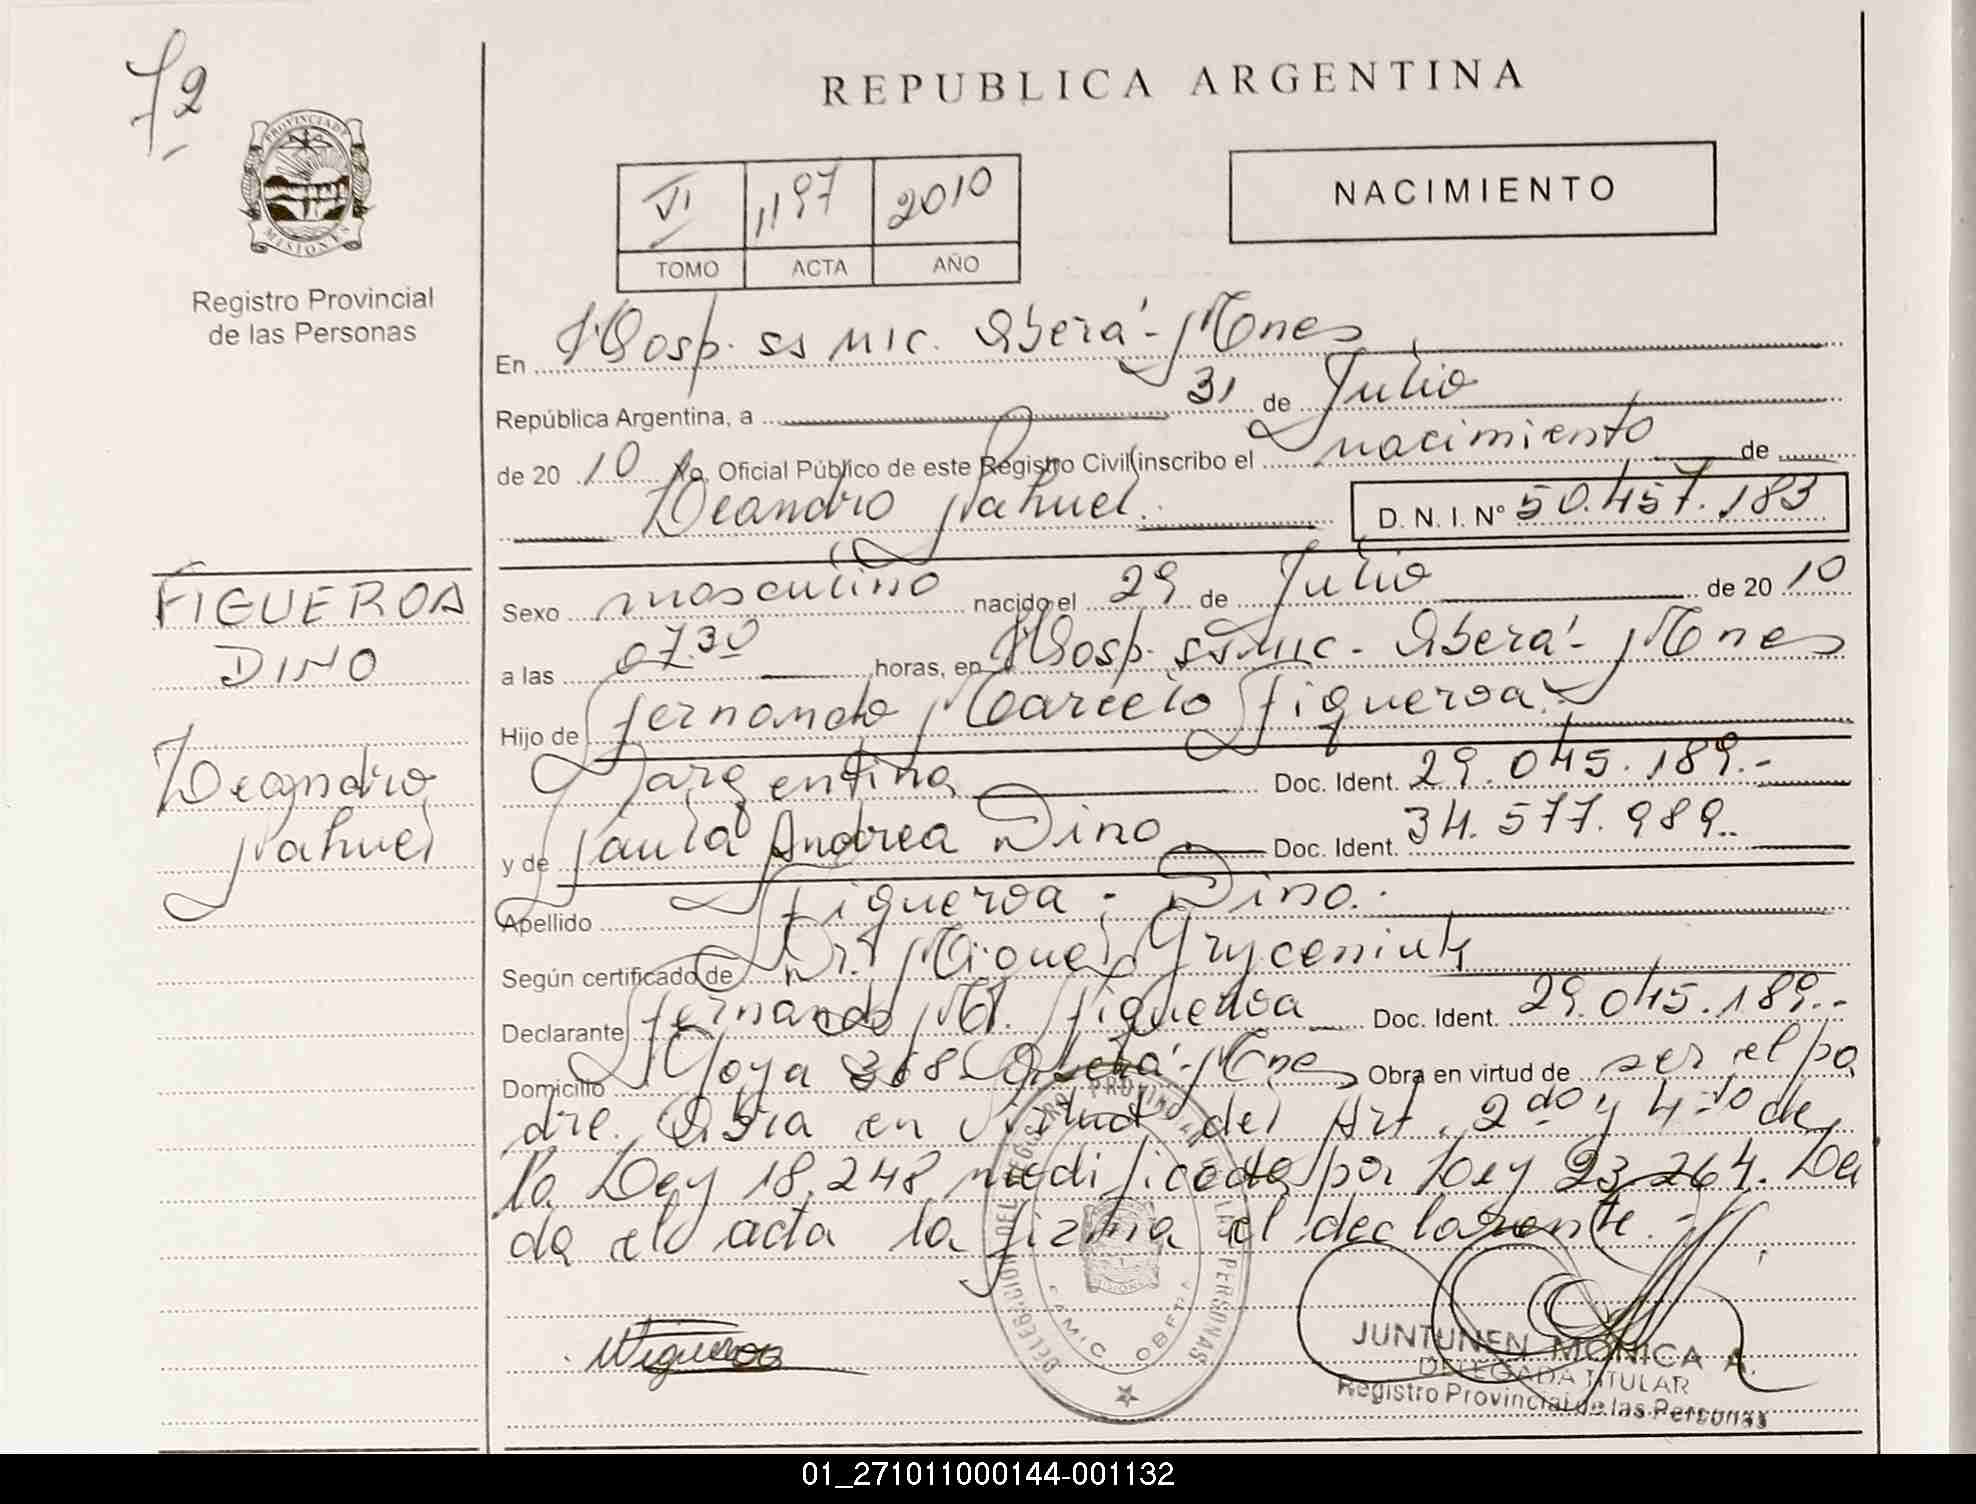 72
PROVINCIA DE
MISIONES
Registro Provincial
de las Personas
REPUBLICA ARGENTINA
VI 1197 2010
TOMO ACTA AÑO
NACIMIENTO
En Hosp. ss MIC. Oberá - Mnes
República Argentina, a 31 de Julio
de 20 10 Yo, Oficial Público de este Registro Civil inscribo el nacimiento de
Leandro Nahuel. D. N. I. Nº 50.457.183
FIGUEROA
DINO
Leandro
Nahuel
Sexo masculino nacido el 29 de Julio de 20 10
a las 07.30 horas, en Hosp. ss MIC - Oberá - Mnes
Hijo de Fernando Marcelo Figueroa.
argentina Doc. Ident. 29.045.189.-
y de Paula Andrea Dino Doc. Ident. 34.577.989..
Apellido Figueroa - Dino.
Según certificado de Dr. Miguel Gryceniuk
Declarante Fernando M. Figueroa Doc. Ident. 29.045.189.-
Domicilio Goya 368 Oberá - Mnes Obra en virtud de ser el pa
dre. Obra en virtud del Art. 2do y 4to de
la Ley 18.248 modificada por Ley 23.264. Lei
da el acta la firma el declarante.-
DELEGACION DEL REGISTRO PROVINCIAL DE LAS PERSONAS
JUNTUNEN MONICA A.
DELEGADA TITULAR
Registro Provincial de las Personas
01_271011000144-001132